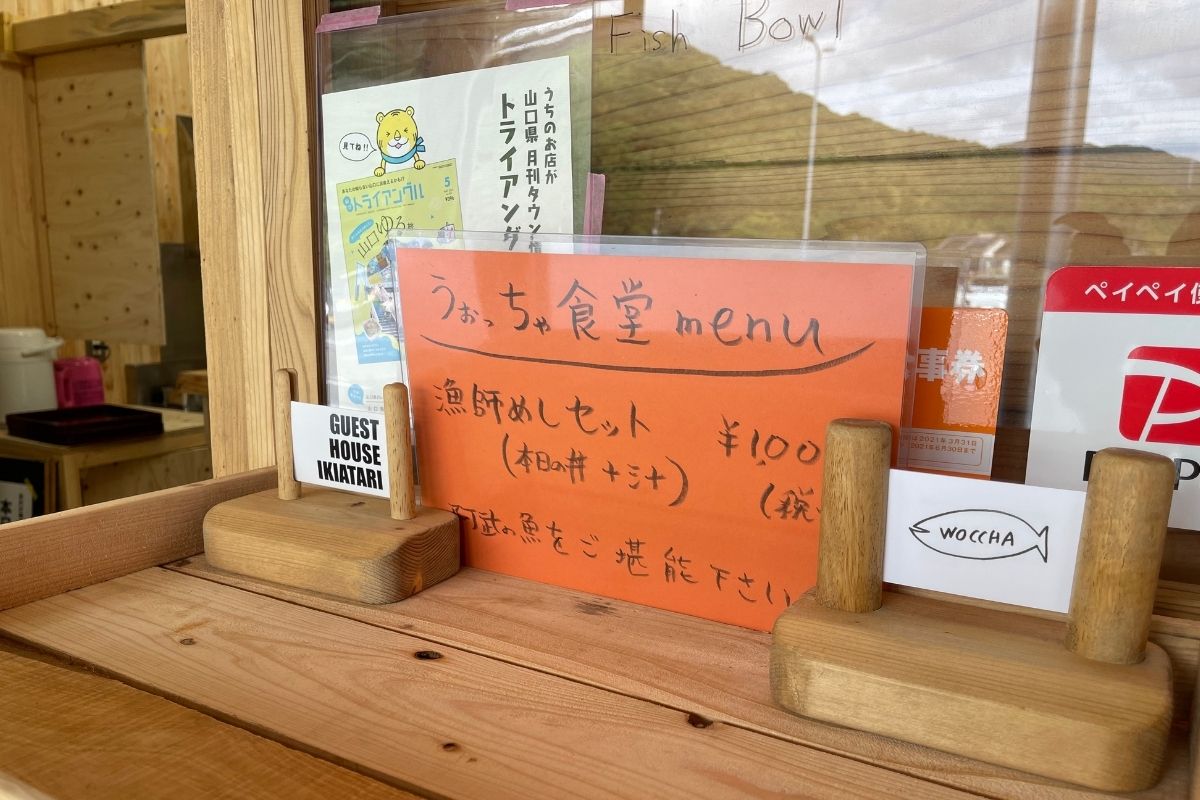 Fish Bowl
うちのお店が
山口県 月刊タウン情
トライアング
見てね!!
トライアングル
5
山口ゆる
うぉっちゃ食堂 menu
漁師めしセット ¥1,00
(本日の丼 + ミナ) (税
阿武の魚をご堪能下さい
GUEST
HOUSE
IKIATARI
WOCCHA
事券
は2021年3月31日
2021年6月30日まで
ペイペイ
P